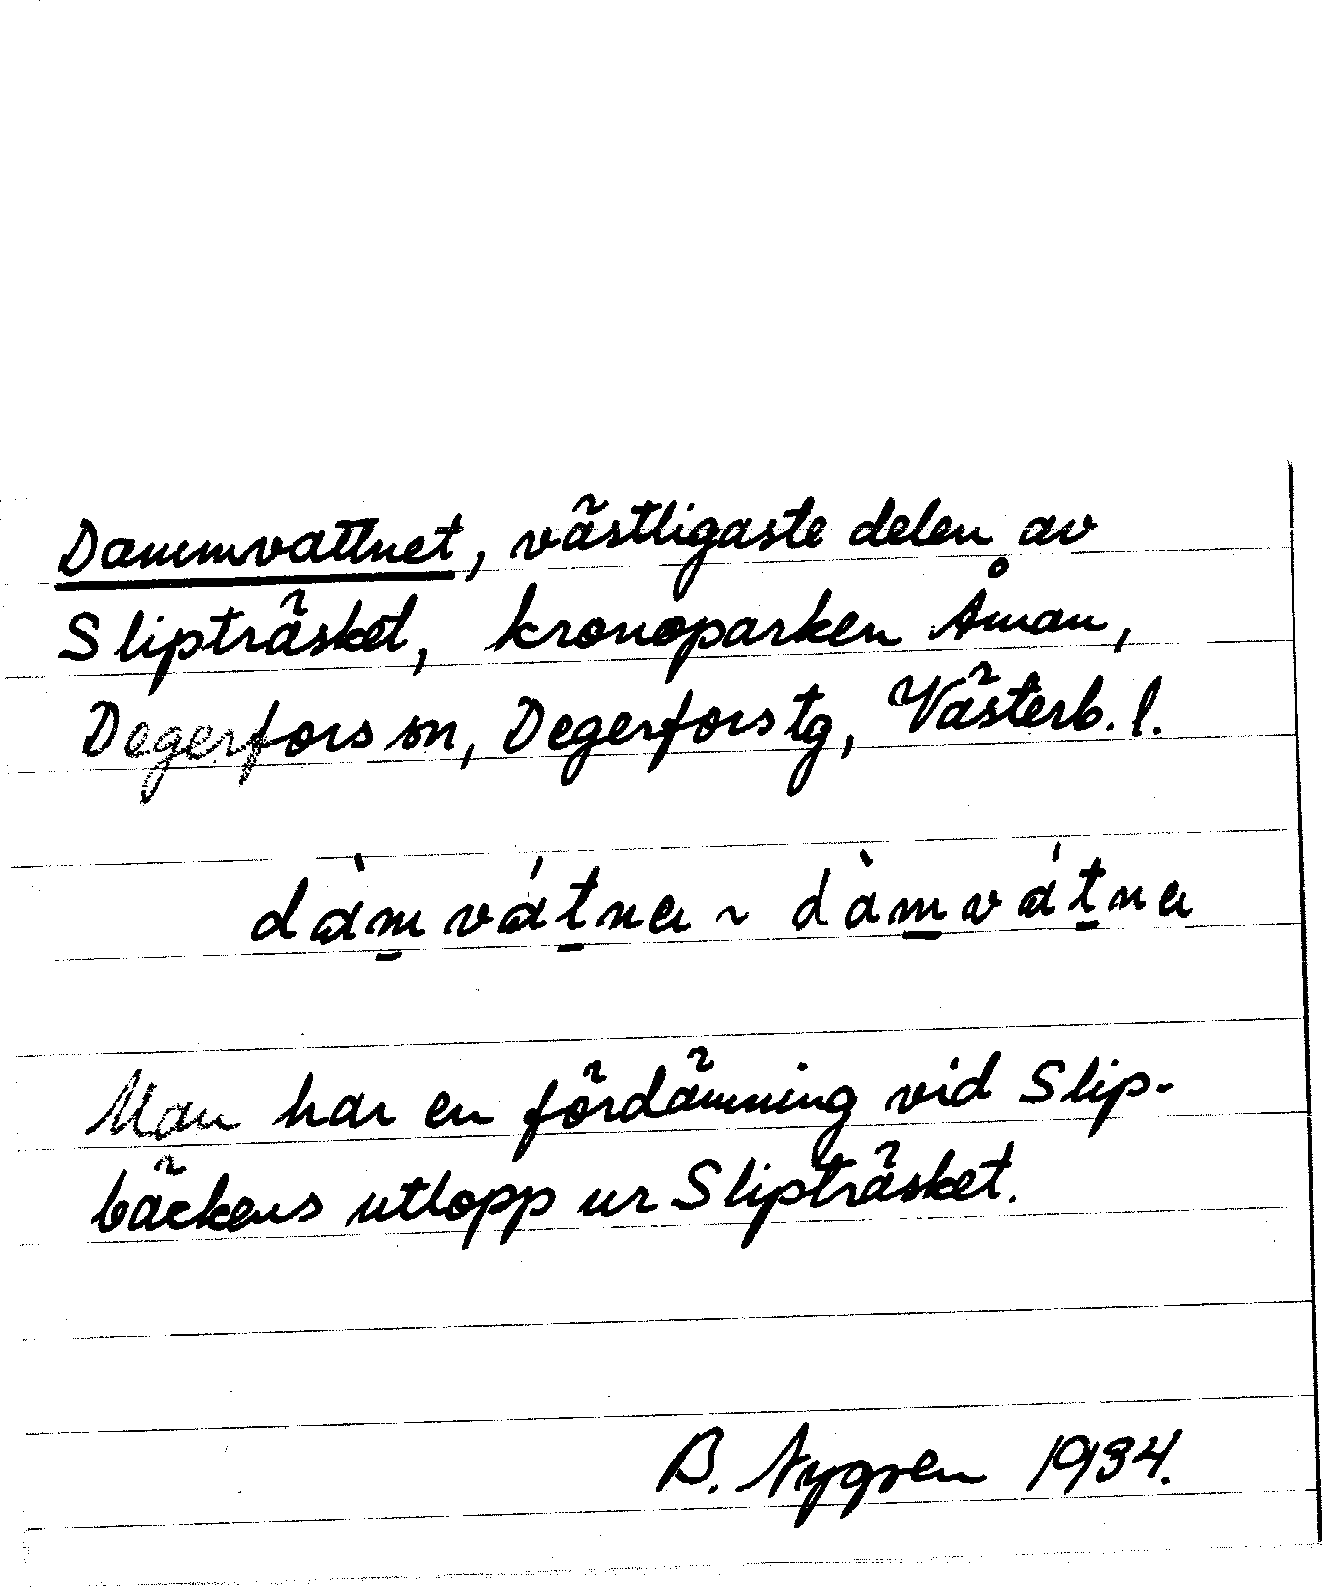 Dammvattnet, västligaste delen av
Slipträsket, kronoparken Åman,
Degerfors sn, Degerfors tg, Västerb. l.
dàm̲ vát̲na ~ dàm̲vát̲na
Man har en fördämning vid Slip-
bäckens utlopp ur Slipträsket.
B. Nygren 1934.